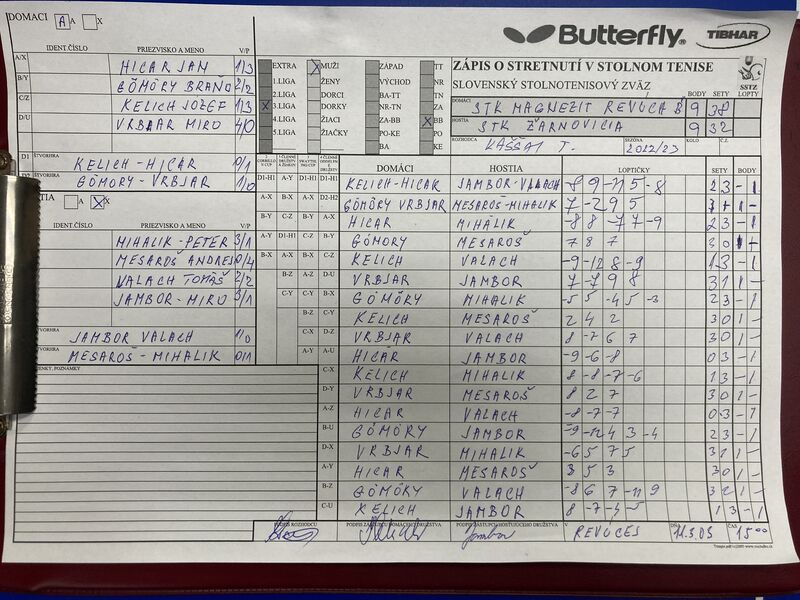 DOMACI A A X
Butterfly® TIBHAR
IDENT.ČÍSLO PRIEZVISKO A MENO V/P
ZÁPIS O STRETNUTÍ V STOLNOM TENISE
SLOVENSKÝ STOLNOTENISOVÝ ZVÄZ SSTZ
A/X HICAR JAN 1/3
B/Y GÖMÖRY BRAŇO 2/2
C/Z KELICH JOZEF 1/3
D/U VRBJAR MIRO 4/0
D1 ŠTVORHRA KELICH-HICAR 0/1
GÖMORY-VRBJAR 1/0
EXTRA X MUŽI ZÁPAD TT
1.LIGA ŽENY VÝCHOD NR
2.LIGA DORCI BA-TT TN
X 3.LIGA DORKY NR-TN ZA
4.LIGA ŽIACI ZA-BB X BB
5.LIGA ŽIAČKY PO-KE PO
BA KE
BODY SETY LOPTY
DOMÁCI STK MAGNEZIT REVÚCA B 9 38
HOSTIA STK ŽARNOVICIA 9 32
ROZHODCA KÁŠŠAI T. SEZÓNA 2022/23 KOLO Č.Z.
TIA A X X
IDENT.ČÍSLO PRIEZVISKO A MENO V/P
MIHALIK-PETER 3/1
MESAROŠ ANDREJ 0/4
VALACH TOMÁŠ 2/2
JAMBOR-MIRO 3/1
TVORHRA JAMBOR VALACH 1/0
MESAROŠ-MIHALIK 0/1
ENKY, POZNÁMKY
DOMÁCI HOSTIA LOPTIČKY SETY BODY
D1-H1 KELICH-HICAR JAMBOR-VALACH -8 9 -11 5 -8 2 3 - 1
D2-H2 GÖMÖRY VRBJAR MESAROŠ-MIHALIK 7 -2 9 5 3 1 1 -
A-X HICAR MIHÁLIK -8 8 -7 7 -9 2 3 - 1
B-Y GÖMORY MESAROŠ 7 8 7 3 0 1 -
C-Z KELICH VALACH -9 -12 8 -9 1 3 - 1
D-U VRBJAR JAMBOR 7 -7 9 8 3 1 1 -
B-X GÖMÖRY MIHALIK -5 5 -4 5 -3 2 3 - 1
C-Y KELICH MESAROŠ 2 4 2 3 0 1 -
D-Z VRBJAR VALACH 8 -7 6 7 3 0 1 -
A-U HICAR JAMBOR -9 -6 -8 0 3 - 1
C-X KELICH MIHALIK -8 8 -7 -6 1 3 - 1
D-Y VRBJAR MESAROŠ 8 2 7 3 0 1 -
A-Z HICAR VALACH -8 -7 -7 0 3 - 1
B-U GÖMÖRY JAMBOR -9 -12 4 3 -4 2 3 - 1
D-X VRBJAR MIHALIK -6 5 7 5 3 1 1 -
A-Y HICAR MESAROŠ 3 5 3 3 0 1 -
B-Z GÖMÖRY VALACH -8 6 7 -11 9 3 2 1 -
C-U KELICH JAMBOR 8 -7 -4 -5 1 3 - 1
PODPIS ROZHODCU PODPIS ZÁSTUPCU DOMÁCEHO DRUŽSTVA PODPIS ZÁSTUPCU HOSŤUJÚCEHO DRUŽSTVA V REVÚCEJ DŇA 11.3.05 ČAS 15 00
Jambor